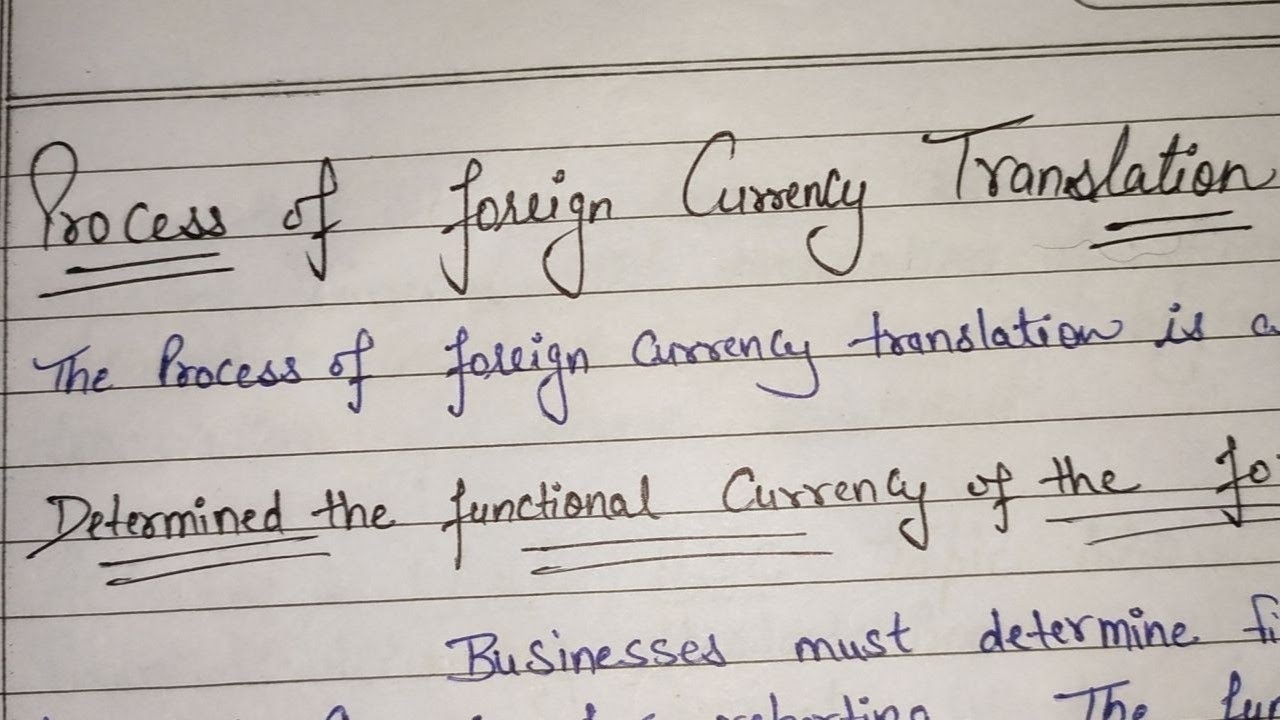 Process of foreign Currency Translation
The Process of foreign Currency translation is a
Determined the functional Currency of the fo
Businesses must determine fi
The fun